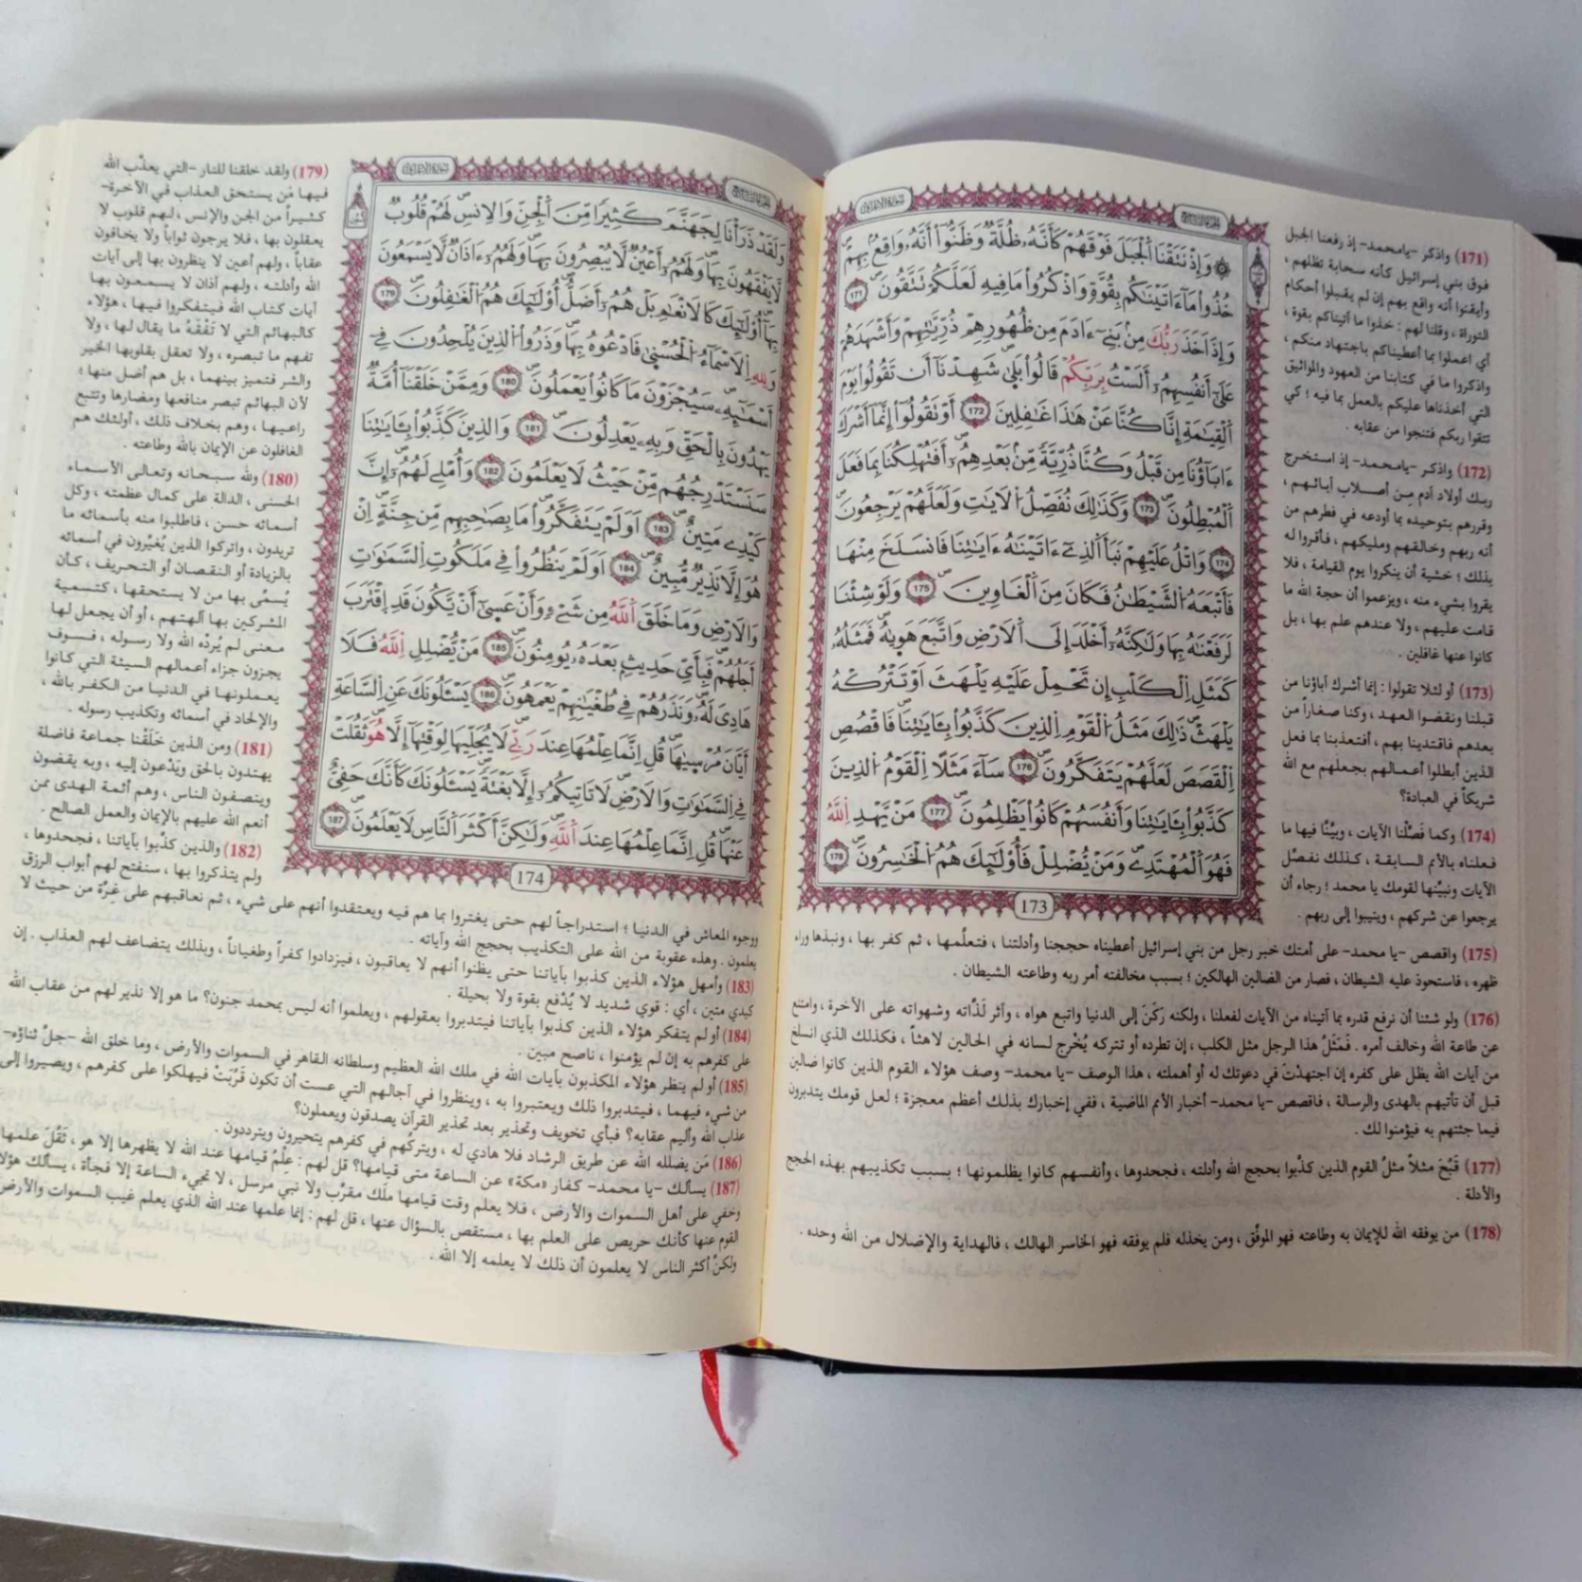 ۞ وَإِذْ نَتَقْنَا اَ۬لْجَبَلَ فَوْقَهُمْ كَأَنَّهُۥ ظُلَّةٌ وَظَنُّوٓاْ أَنَّهُۥ وَاقِعُۢ بِهِمْ
خُذُواْ مَآ ءَاتَيْنَٰكُم بِقُوَّةٍ وَاذْكُرُواْ مَا فِيهِ لَعَلَّكُمْ تَتَّقُونَ 171
وَإِذَ اَخَذَ رَبُّكَ مِنۢ بَنِےٓ ءَادَمَ مِن ظُهُورِهِمْ ذُرِّيَّٰتِهِمْ وَأَشْهَدَهُمْ
عَلَىٰٓ أَنفُسِهِمُۥٓ أَلَسْتُ بِرَبِّكُمْ قَالُواْ بَلَىٰ شَهِدْنَآ أَن تَقُولُواْ يَوْمَ
اَ۬لْقِيَٰمَةِ إِنَّا كُنَّا عَنْ هَٰذَا غَٰفِلِينَ 172 أَوْ تَقُولُوٓاْ إِنَّمَآ أَشْرَكَ
ءَابَآؤُنَا مِن قَبْلُ وَكُنَّا ذُرِّيَّةً مِّنۢ بَعْدِهِمُۥٓ أَفَتُهْلِكُنَا بِمَا فَعَلَ
اَ۬لْمُبْطِلُونَ 173 وَكَذَٰلِكَ نُفَصِّلُ اُ۬لَايَٰتِ وَلَعَلَّهُمْ يَرْجِعُونَ
174 وَاتْلُ عَلَيْهِمْ نَبَأَ اَ۬لذِےٓ ءَاتَيْنَٰهُ ءَايَٰتِنَا فَانسَلَخَ مِنْهَا
فَأَتْبَعَهُ اُ۬لشَّيْطَٰنُ فَكَانَ مِنَ اَ۬لْغَاوِينَ 175 وَلَوْ شِئْنَا
لَرَفَعْنَٰهُ بِهَا وَلَٰكِنَّهُۥٓ أَخْلَدَ إِلَى اَ۬لَارْضِ وَاتَّبَعَ هَوَىٰهُ فَمَثَلُهُۥ
كَمَثَلِ اِ۬لْكَلْبِ إِن تَحْمِلْ عَلَيْهِ يَلْهَثَ اَوْ تَتْرُكْهُ
يَلْهَث ذَّٰلِكَ مَثَلُ اُ۬لْقَوْمِ اِ۬لذِينَ كَذَّبُواْ بِـَٔايَٰتِنَا فَاقْصُصِ
اِ۬لْقَصَصَ لَعَلَّهُمْ يَتَفَكَّرُونَ 176 سَآءَ مَثَلًا اِ۬لْقَوْمُ اُ۬لذِينَ
كَذَّبُواْ بِـَٔايَٰتِنَا وَأَنفُسَهُمْ كَانُواْ يَظْلِمُونَ 177 مَنْ يَّهْدِ اِ۬للَّهُ
فَهُوَ اَ۬لْمُهْتَدِے وَمَنْ يُّضْلِلْ فَأُوْلَٰٓئِكَ هُمُ اُ۬لْخَٰسِرُونَ 178
173
(171) واذكر -يامحمد- إذ رفعنا الجبل
فوق بني إسرائيل كأنه سحابة تظلهم ،
وأيقنوا أنه واقع بهم إن لم يقبلوا أحكام
التوراة ، وقلنا لهم : خذوا ما آتيناكم بقوة ،
أي اعملوا بما أعطيناكم باجتهاد منكم ،
واذكروا ما في كتابنا من العهود والمواثيق
التي أخذناها عليكم بالعمل بما فيه ؛ كي
تتقوا ربكم فتنجوا من عقابه .
(172) واذكر -يامحمد- إذ استخرج
ربك أولاد آدم مِن أصلاب آبائهم ،
وقررهم بتوحيده بما أودعه في فطرهم من
أنه ربهم وخالقهم ومليكهم ، فأقروا له
بذلك ؛ خشية أن ينكروا يوم القيامة ، فلا
يقروا بشيء منه ، ويزعموا أن حجة الله ما
قامت عليهم ، ولا عندهم علم بها ، بل
كانوا عنها غافلين .
(173) أو لئلا تقولوا : إنما أشرك آباؤنا من
قبلنا ونقضوا العهد ، وكنا صغاراً من
بعدهم فاقتدينا بهم ، أفتعذبنا بما فعل
الذين أبطلوا أعمالهم بجعلهم مع الله
شريكاً في العبادة؟
(174) وكما فَصَّلْنا الآيات ، وبيَّنَّا فيها ما
فعلناه بالأمم السابقة ، كذلك نفصِّل
الآيات ونبيِّنها لقومك يا محمد ؛ رجاء أن
يرجعوا عن شركهم ، وينيبوا إلى ربهم .
(175) واقصص -يا محمد- على أمتك خبر رجل من بني إسرائيل أعطيناه حججنا وأدلتنا ، فتعلَّمها ، ثم كفر بها ، ونبذها وراء
ظهره ، فاستحوذ عليه الشيطان ، فصار من الضالين الهالكين ؛ بسبب مخالفته أمر ربه وطاعته الشيطان .
(176) ولو شئنا أن نرفع قدره بما آتيناه من الآيات لفعلنا ، ولكنه رَكَنَ إلى الدنيا واتبع هواه ، وآثر لَذَّاته وشهواته على الآخرة ، وامتنع
عن طاعة الله وخالف أمره . فَمَثَلُ هذا الرجل مثل الكلب ، إن تطرده أو تتركه يُخْرج لسانه في الحالين لاهثاً ، فكذلك الذي انسلخ
من آيات الله يظل على كفره إن اجتهدْتَ في دعوتك له أو أهملته ، هذا الوصف -يا محمد- وصف هؤلاء القوم الذين كانوا ضالين
قبل أن تأتيهم بالهدى والرسالة ، فاقصص -يا محمد- أخبار الأمم الماضية ، ففي إخبارك بذلك أعظم معجزة ؛ لعل قومك يتدبرون
فيما جئتهم به فيؤمنوا لك .
(177) قَبُحَ مثلاً مثلُ القوم الذين كذَّبوا بحجج الله وأدلته ، فجحدوها ، وأنفسهم كانوا يظلمونها ؛ بسبب تكذيبهم بهذه الحجج
والأدلة .
(178) من يوفقه الله للإيمان به وطاعته فهو الموفَّق ، ومن يخذله فلم يوفقه فهو الخاسر الهالك ، فالهداية والإضلال من الله وحده .
وَلَقَدْ ذَرَأْنَا لِجَهَنَّمَ كَثِيرًا مِّنَ اَ۬لْجِنِّ وَالِانسِ لَهُمْ قُلُوبٌ
لَّا يَفْقَهُونَ بِهَا وَلَهُمُۥٓ أَعْيُنٌ لَّا يُبْصِرُونَ بِهَا وَلَهُمُۥٓ ءَاذَانٌ لَّا يَسْمَعُونَ
بِهَآ أُوْلَٰٓئِكَ كَالَانْعَٰمِ بَلْ هُمُۥٓ أَضَلُّ أُوْلَٰٓئِكَ هُمُ اُ۬لْغَٰفِلُونَ 179
وَلِلهِ اِ۬لَاسْمَآءُ اُ۬لْحُسْنَىٰ فَادْعُوهُ بِهَا وَذَرُواْ اُ۬لذِينَ يُلْحِدُونَ فِےٓ
أَسْمَٰٓئِهِۦ سَيُجْزَوْنَ مَا كَانُواْ يَعْمَلُونَ 180 وَمِمَّنْ خَلَقْنَآ أُمَّةٌ
يَهْدُونَ بِالْحَقِّ وَبِهِۦ يَعْدِلُونَ 181 وَالذِينَ كَذَّبُواْ بِـَٔايَٰتِنَا
سَنَسْتَدْرِجُهُم مِّنْ حَيْثُ لَا يَعْلَمُونَ 182 وَأُمْلِے لَهُمُۥٓ إِنَّ
كَيْدِے مَتِينٌ 183 اَوَلَمْ يَتَفَكَّرُواْ مَا بِصَاحِبِهِم مِّن جِنَّةٍ اِنْ
هُوَ إِلَّا نَذِيرٌ مُّبِينٌ 184 اَوَلَمْ يَنظُرُواْ فِے مَلَكُوتِ اِ۬لسَّمَٰوَٰتِ
وَالَارْضِ وَمَا خَلَقَ اَ۬للَّهُ مِن شَےْءٍ وَأَنْ عَسَىٰٓ أَنْ يَّكُونَ قَدِ اِ۪قْتَرَبَ
أَجَلُهُمْ فَبِأَيِّ حَدِيثِۢ بَعْدَهُۥ يُومِنُونَ 185 مَنْ يُّضْلِلِ اِ۬للَّهُ فَلَا
هَادِيَ لَهُۥ وَنَذَرُهُمْ فِے طُغْيَٰنِهِمْ يَعْمَهُونَ 186 يَسْـَٔلُونَكَ عَنِ اِ۬لسَّاعَةِ
أَيَّانَ مُرْسَىٰهَا قُلِ اِنَّمَا عِلْمُهَا عِندَ رَبِّے لَا يُجَلِّيهَا لِوَقْتِهَآ إِلَّا هُوَ ثَقُلَتْ
فِے اِ۬لسَّمَٰوَٰتِ وَالَارْضِ لَا تَاتِيكُمُۥٓ إِلَّا بَغْتَةً يَسْـَٔلُونَكَ كَأَنَّكَ حَفِيٌّ
عَنْهَا قُلِ اِنَّمَا عِلْمُهَا عِندَ اَ۬للَّهِ وَلَٰكِنَّ أَكْثَرَ اَ۬لنَّاسِ لَا يَعْلَمُونَ 187
174
(179) ولقد خلقنا للنار -التي يعذِّب الله
فيها مَن يستحق العذاب في الآخرة-
كثيراً من الجن والإنس ، لهم قلوب لا
يعقلون بها ، فلا يرجون ثواباً ولا يخافون
عقاباً ، ولهم أعين لا ينظرون بها إلى آيات
الله وأدلته ، ولهم آذان لا يسمعون بها
آيات كتاب الله فيتفكروا فيها ، هؤلاء
كالبهائم التي لا تَفْقَهُ ما يقال لها ، ولا
تفهم ما تبصره ، ولا تعقل بقلوبها الخير
والشر فتميز بينهما ، بل هم أضل منها ؛
لأن البهائم تبصر منافعها ومضارها وتتبع
راعيها ، وهم بخلاف ذلك ، أولئك هم
الغافلون عن الإيمان بالله وطاعته .
(180) ولله سبحانه وتعالى الأسماء
الحسنى ، الدالة على كمال عظمته ، وكل
أسمائه حسن ، فاطلبوا منه بأسمائه ما
تريدون ، واتركوا الذين يُغيِّرون في أسمائه
بالزيادة أو النقصان أو التحريف ، كأن
يُسمَّى بها من لا يستحقها ، كتسمية
المشركين بها آلهتهم ، أو أن يجعل لها
معنى لم يُرِدْه الله ولا رسوله ، فسوف
يجزون جزاء أعمالهم السيئة التي كانوا
يعملونها في الدنيا من الكفر بالله ،
والإلحاد في أسمائه وتكذيب رسوله .
(181) ومن الذين خَلَقْنا جماعة فاضلة
يهتدون بالحق ويَدْعون إليه ، وبه يقضون
وينصفون الناس ، وهم أئمة الهدى ممن
أنعم الله عليهم بالإيمان والعمل الصالح .
(182) والذين كذَّبوا بآياتنا ، فجحدوها ،
ولم يتذكروا بها ، سنفتح لهم أبواب الرزق
ووجوه المعاش في الدنيا ؛ استدراجاً لهم حتى يغتروا بما هم فيه ويعتقدوا أنهم على شيء ، ثم نعاقبهم على غِرَّة من حيث لا
يعلمون . وهذه عقوبة من الله على التكذيب بحجج الله وآياته .
(183) وأمهل هؤلاء الذين كذبوا بآياتنا حتى يظنوا أنهم لا يعاقبون ، فيزدادوا كفراً وطغياناً ، وبذلك يتضاعف لهم العذاب . إن
كيدي متين ، أي : قوي شديد لا يُدْفع بقوة ولا بحيلة .
(184) أو لم يتفكر هؤلاء الذين كذبوا بآياتنا فيتدبروا بعقولهم ، ويعلموا أنه ليس بمحمد جنون؟ ما هو إلا نذير لهم من عقاب الله
على كفرهم به إن لم يؤمنوا ، ناصح مبين .
(185) أو لم ينظر هؤلاء المكذبون بآيات الله في ملك الله العظيم وسلطانه القاهر في السموات والأرض ، وما خلق الله -جلَّ ثناؤه-
من شيء فيهما ، فيتدبروا ذلك ويعتبروا به ، وينظروا في آجالهم التي عست أن تكون قَرُبَتْ فيهلكوا على كفرهم ، ويصيروا إلى
عذاب الله وأليم عقابه؟ فبأي تخويف وتحذير بعد تحذير القرآن يصدقون ويعملون؟
(186) مَن يضلله الله عن طريق الرشاد فلا هادي له ، ويتركُهم في كفرهم يتحيرون ويترددون .
(187) يسألك -يا محمد- كفار «مكة» عن الساعة متى قيامها؟ قل لهم : عِلْمُ قيامها عند الله لا يظهرها إلا هو ، ثَقُلَ علمها
وخفي على أهل السموات والأرض ، فلا يعلم وقت قيامها ملَك مقرَّب ولا نبي مرسل ، لا تجيء الساعة إلا فجأة ، يسألك هؤلاء
القوم عنها كأنك حريص على العلم بها ، مستقص بالسؤال عنها ، قل لهم : إنما علمها عند الله الذي يعلم غيب السموات والأرض
ولكنَّ أكثر الناس لا يعلمون أن ذلك لا يعلمه إلا الله .